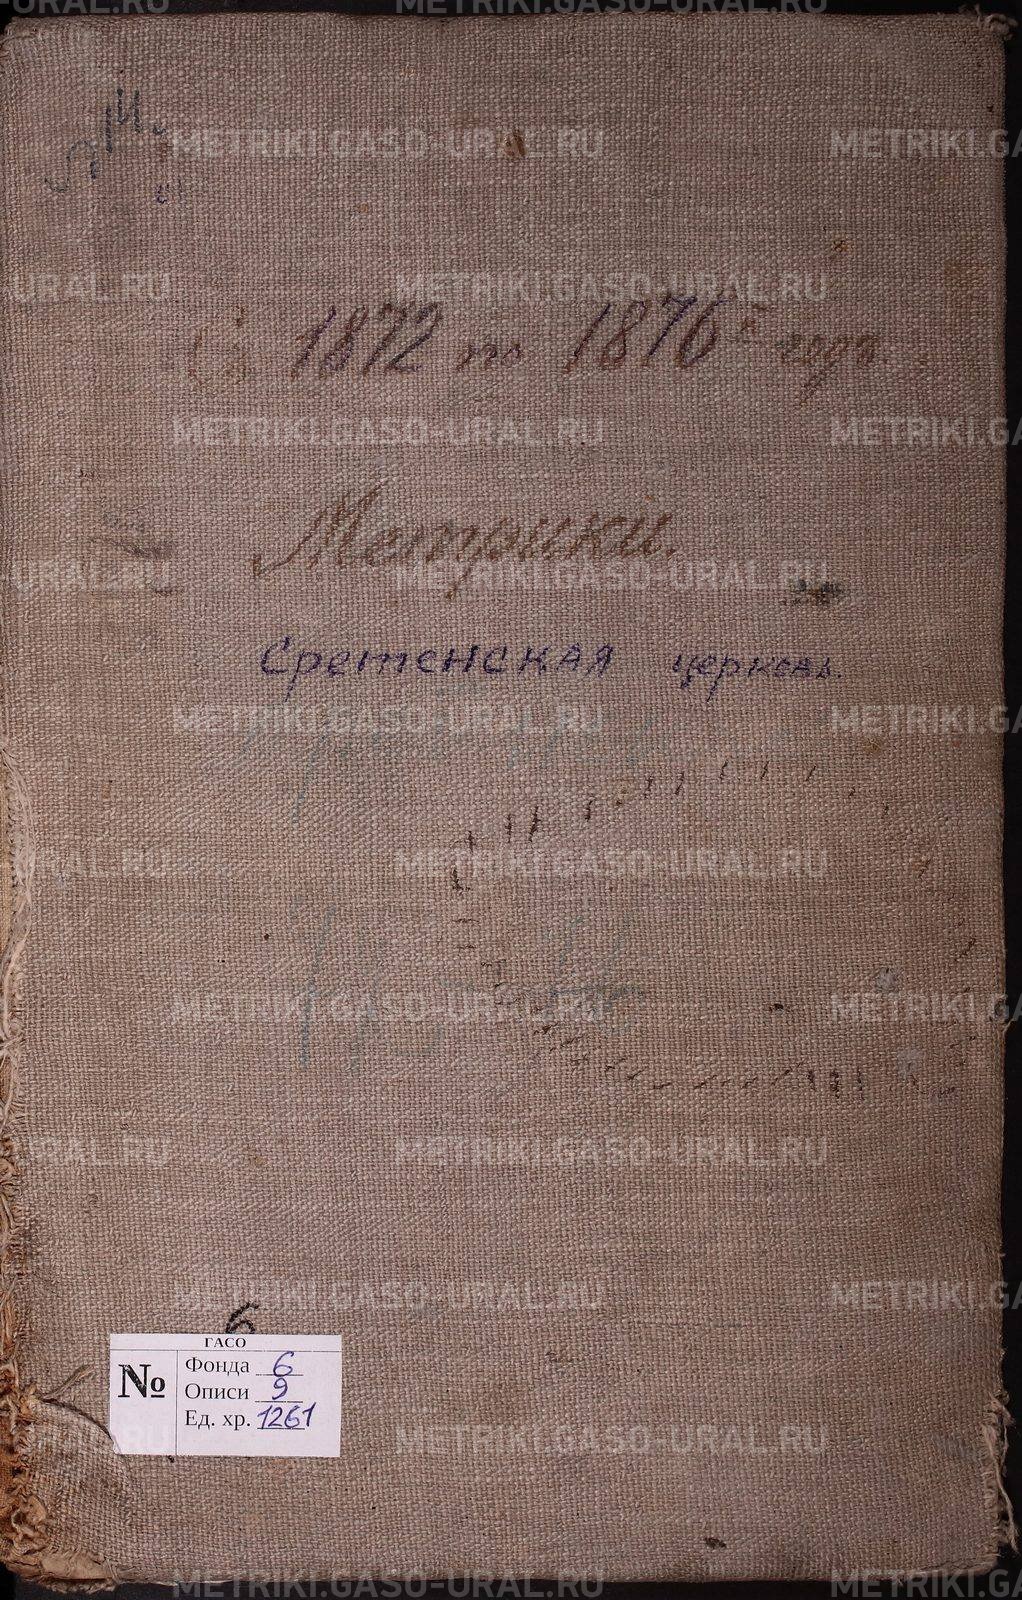 Съ 1872 по 1876й годъ.
Метрики.
Сретенская церковь.
6
ГАСО
№
Фонда 6
Описи 9
Ед. хр. 1261
METRIKI.GASO-URAL.RU